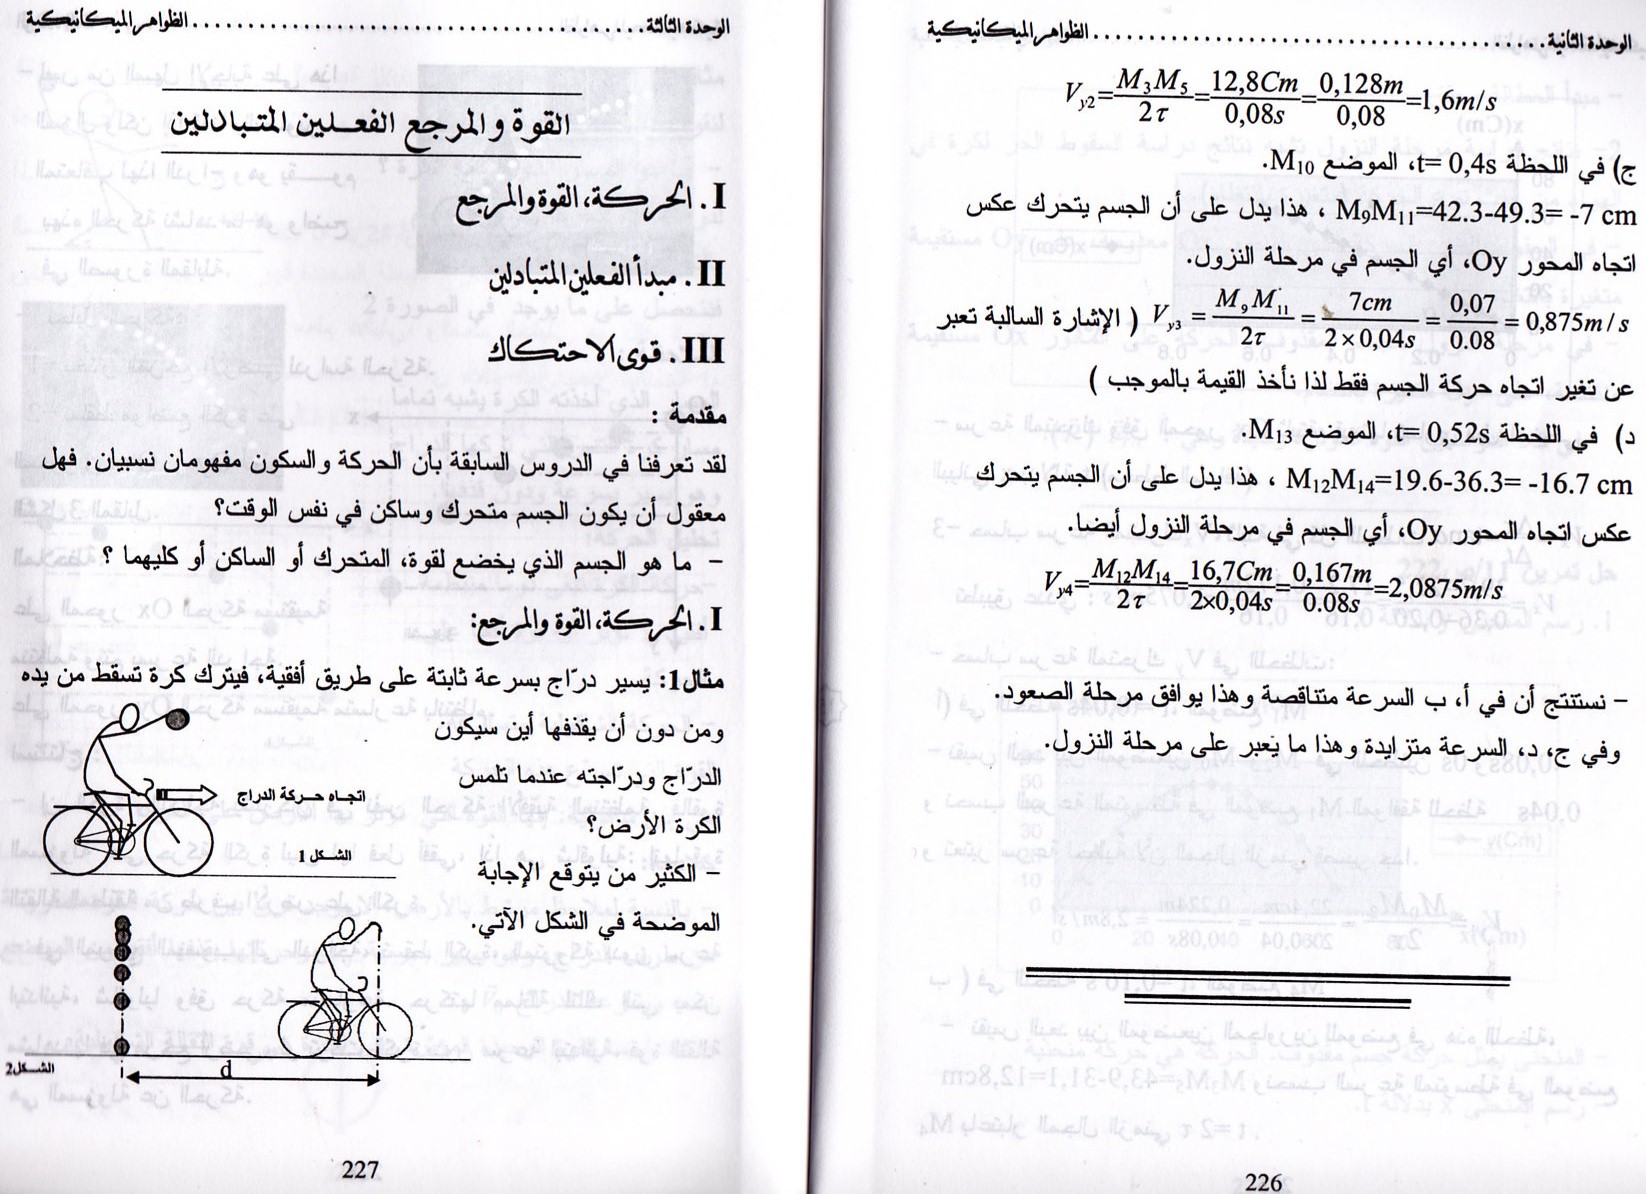 الوحدة الثانية ........................................ الظواهر الميكانيكية
V_{y2} = \frac{M_3M_5}{2\tau} = \frac{12,8Cm}{0,08s} = \frac{0,128m}{0,08} = 1,6m/s
ج) في اللحظة t= 0,4s، الموضع M10.
M9M11=42.3-49.3= -7 cm ، هذا يدل على أن الجسم يتحرك عكس
اتجاه المحور Oy، أي الجسم في مرحلة النزول.
V_{y3} = \frac{M_9M_{11}}{2\tau} = \frac{7cm}{2×0,04s} = \frac{0,07}{0.08} = 0,875m/s ( الإشارة السالبة تعبر
عن تغير اتجاه حركة الجسم فقط لذا نأخذ القيمة بالموجب )
د) في اللحظة t= 0,52s، الموضع M13.
M12M14=19.6-36.3= -16.7 cm ، هذا يدل على أن الجسم يتحرك
عكس اتجاه المحور Oy، أي الجسم في مرحلة النزول أيضا.
V_{y4} = \frac{M_{12}M_{14}}{2\tau} = \frac{16,7Cm}{2×0,04s} = \frac{0,167m}{0.08s} = 2,0875m/s
– نستنتج أن في أ، ب السرعة متناقصة وهذا يوافق مرحلة الصعود.
وفي ج، د، السرعة متزايدة وهذا ما يعبر على مرحلة النزول.
226
الوحدة الثالثة ........................................ الظواهر الميكانيكية
القوة والمرجع الفعلين المتبادلين
I. الحركة، القوة والمرجع
II. مبدأ الفعلين المتبادلين
III. قوى الاحتكاك
مقدمة :
لقد تعرفنا في الدروس السابقة بأن الحركة والسكون مفهومان نسبيان. فهل
معقول أن يكون الجسم متحرك وساكن في نفس الوقت؟
– ما هو الجسم الذي يخضع لقوة، المتحرك أو الساكن أو كليهما ؟
I. الحركة، القوة والمرجع:
مثال1: يسير درّاج بسرعة ثابتة على طريق أفقية، فيترك كرة تسقط من يده
ومن دون أن يقذفها أين سيكون
الدرّاج ودرّاجته عندما تلمس
اتجاه حركة الدراج
الكرة الأرض؟
الشكل 1
– الكثير من يتوقع الإجابة
الموضحة في الشكل الآتي.
d
الشكل2
227